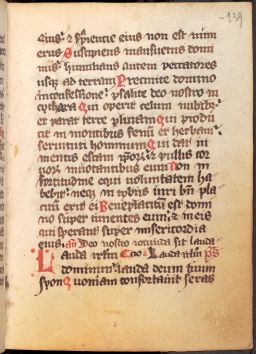 239
eius: et sapientie eius non est num
erus Suscipiens mansuetus domi
nus: humilians autem peccatores
usque ad terram Precinite domino
in confessione: psallite deo nostro in
cythara Qui operit celum nubibus:
et parat terre pluviam Qui produ
cit in montibus fenum: et herbam
servituti hominum Qui dat iu
mentis escam ipsorum: et pullis cor
vorum invocantibus eum Non in
fortitudine equi voluntatem ha
bebit: neque in tybiis viri beneplaci
tum erit ei Beneplacitum est domi
no super timentes eum: et in eis
qui sperant super misericordia
eius. an Deo nostro iocunda sit lauda
Lauda irlm Lauda irlm ps
dominum: lauda deum tuum
syon Quoniam confortavit seras